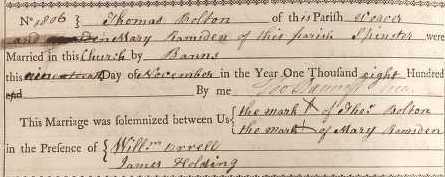 No 1806 } Thomas Bolton of this Parish Weaver
and Mary Ramsden of this parish Spinster were
Married in this Church by Banns
this nineteenth Day of November in the Year One Thousand eight Hundred
and By me
This Marriage was solemnized between Us { the mark X of Thos. Bolton
the mark X of Mary Ramsden
in the Presence of { Willm Orrell
James Holding